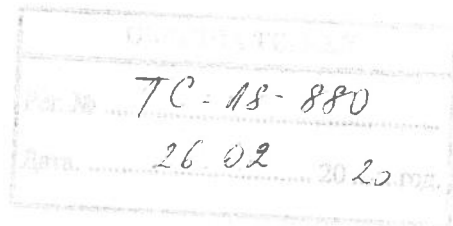 Рег. № ТС-18-880
Дата. 26 02 2020 год.